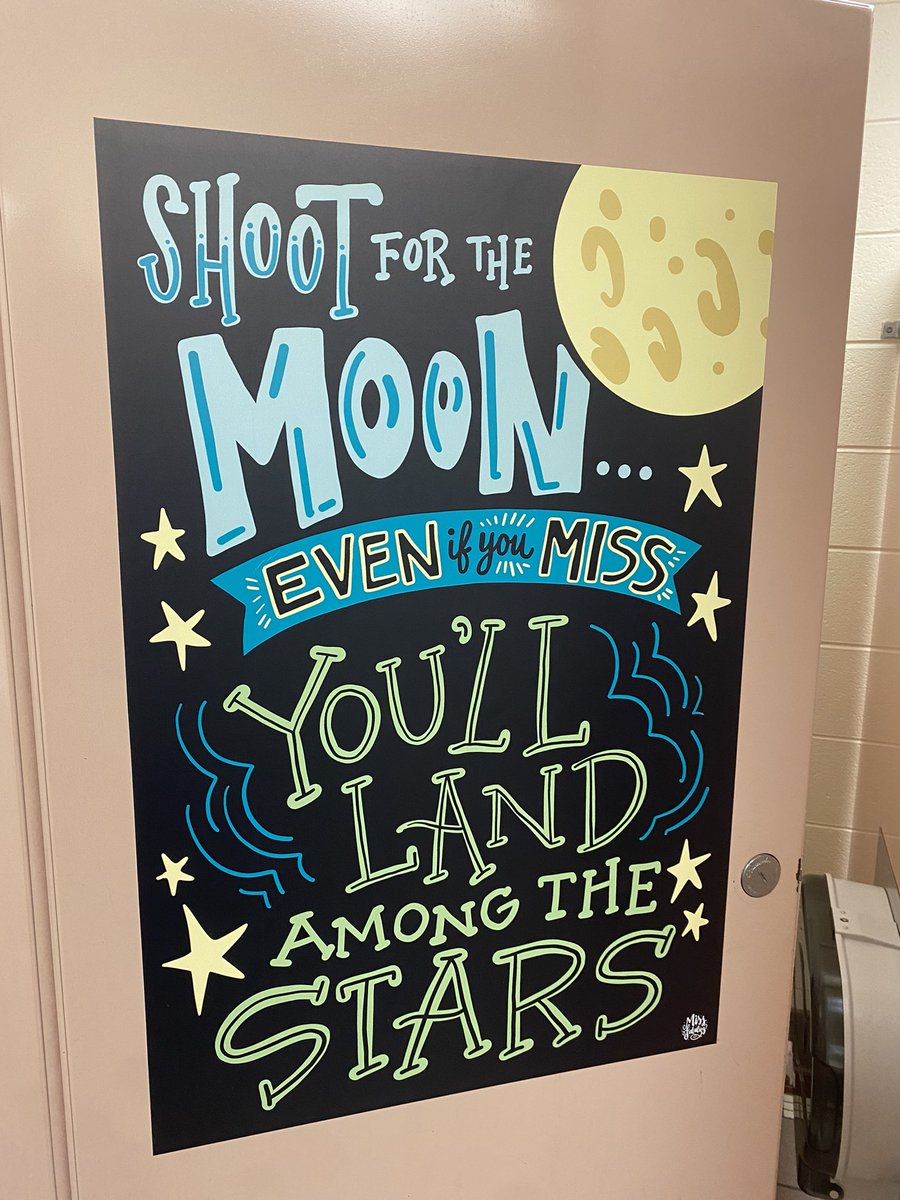 SHOOT FOR THE
MOON...
EVEN if you MISS
YOU'LL
LAND
AMONG THE
STARS